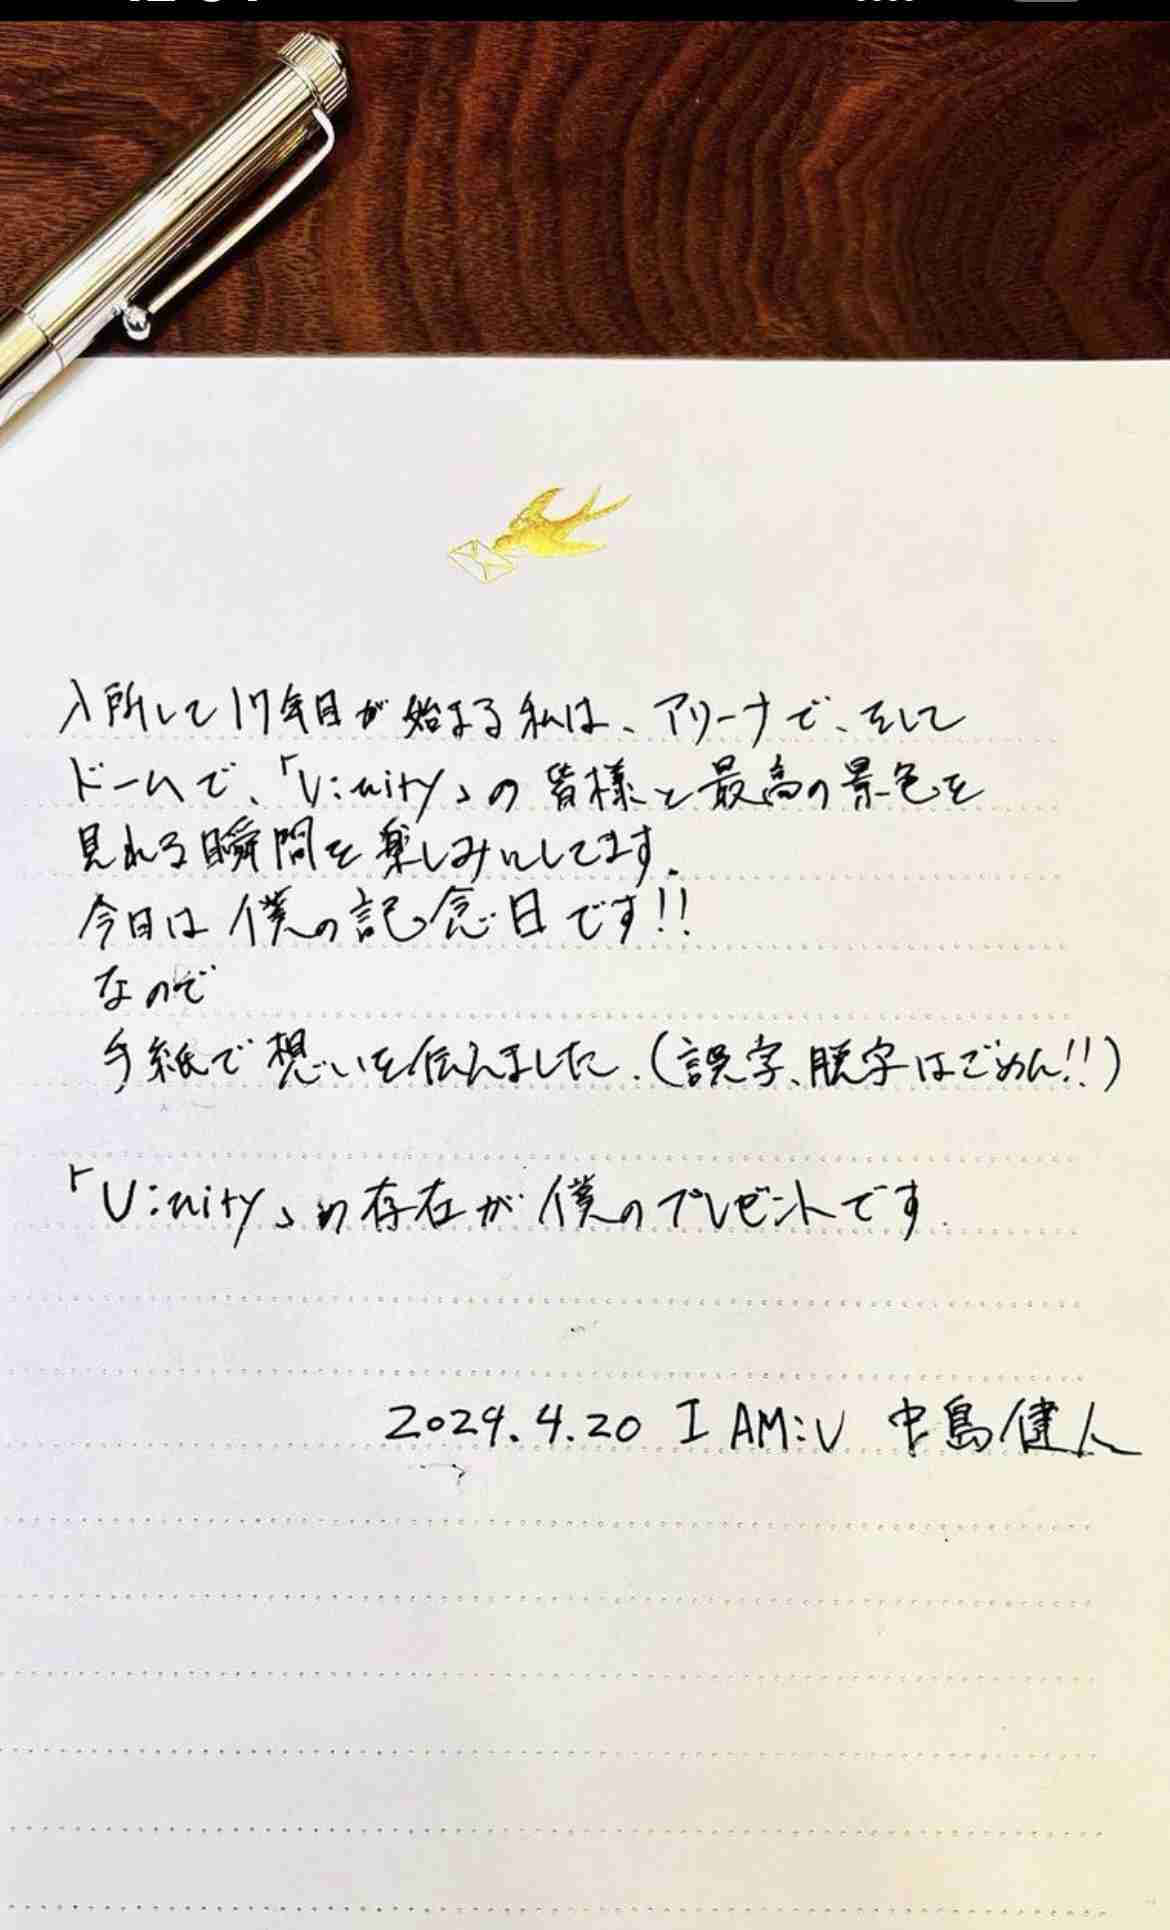 入所して17年目が始まる私は、アリーナで、そして
ドームで、「U:nity」の皆様と最高の景色を
見れる瞬間を楽しみにしてます.
今日は僕の記念日です!!
なので
手紙で想いを伝えました.(誤字、脱字はごめん!!)
「U:nity」の存在が僕のプレゼントです.
2024.4.20 I AM:U 中島健人